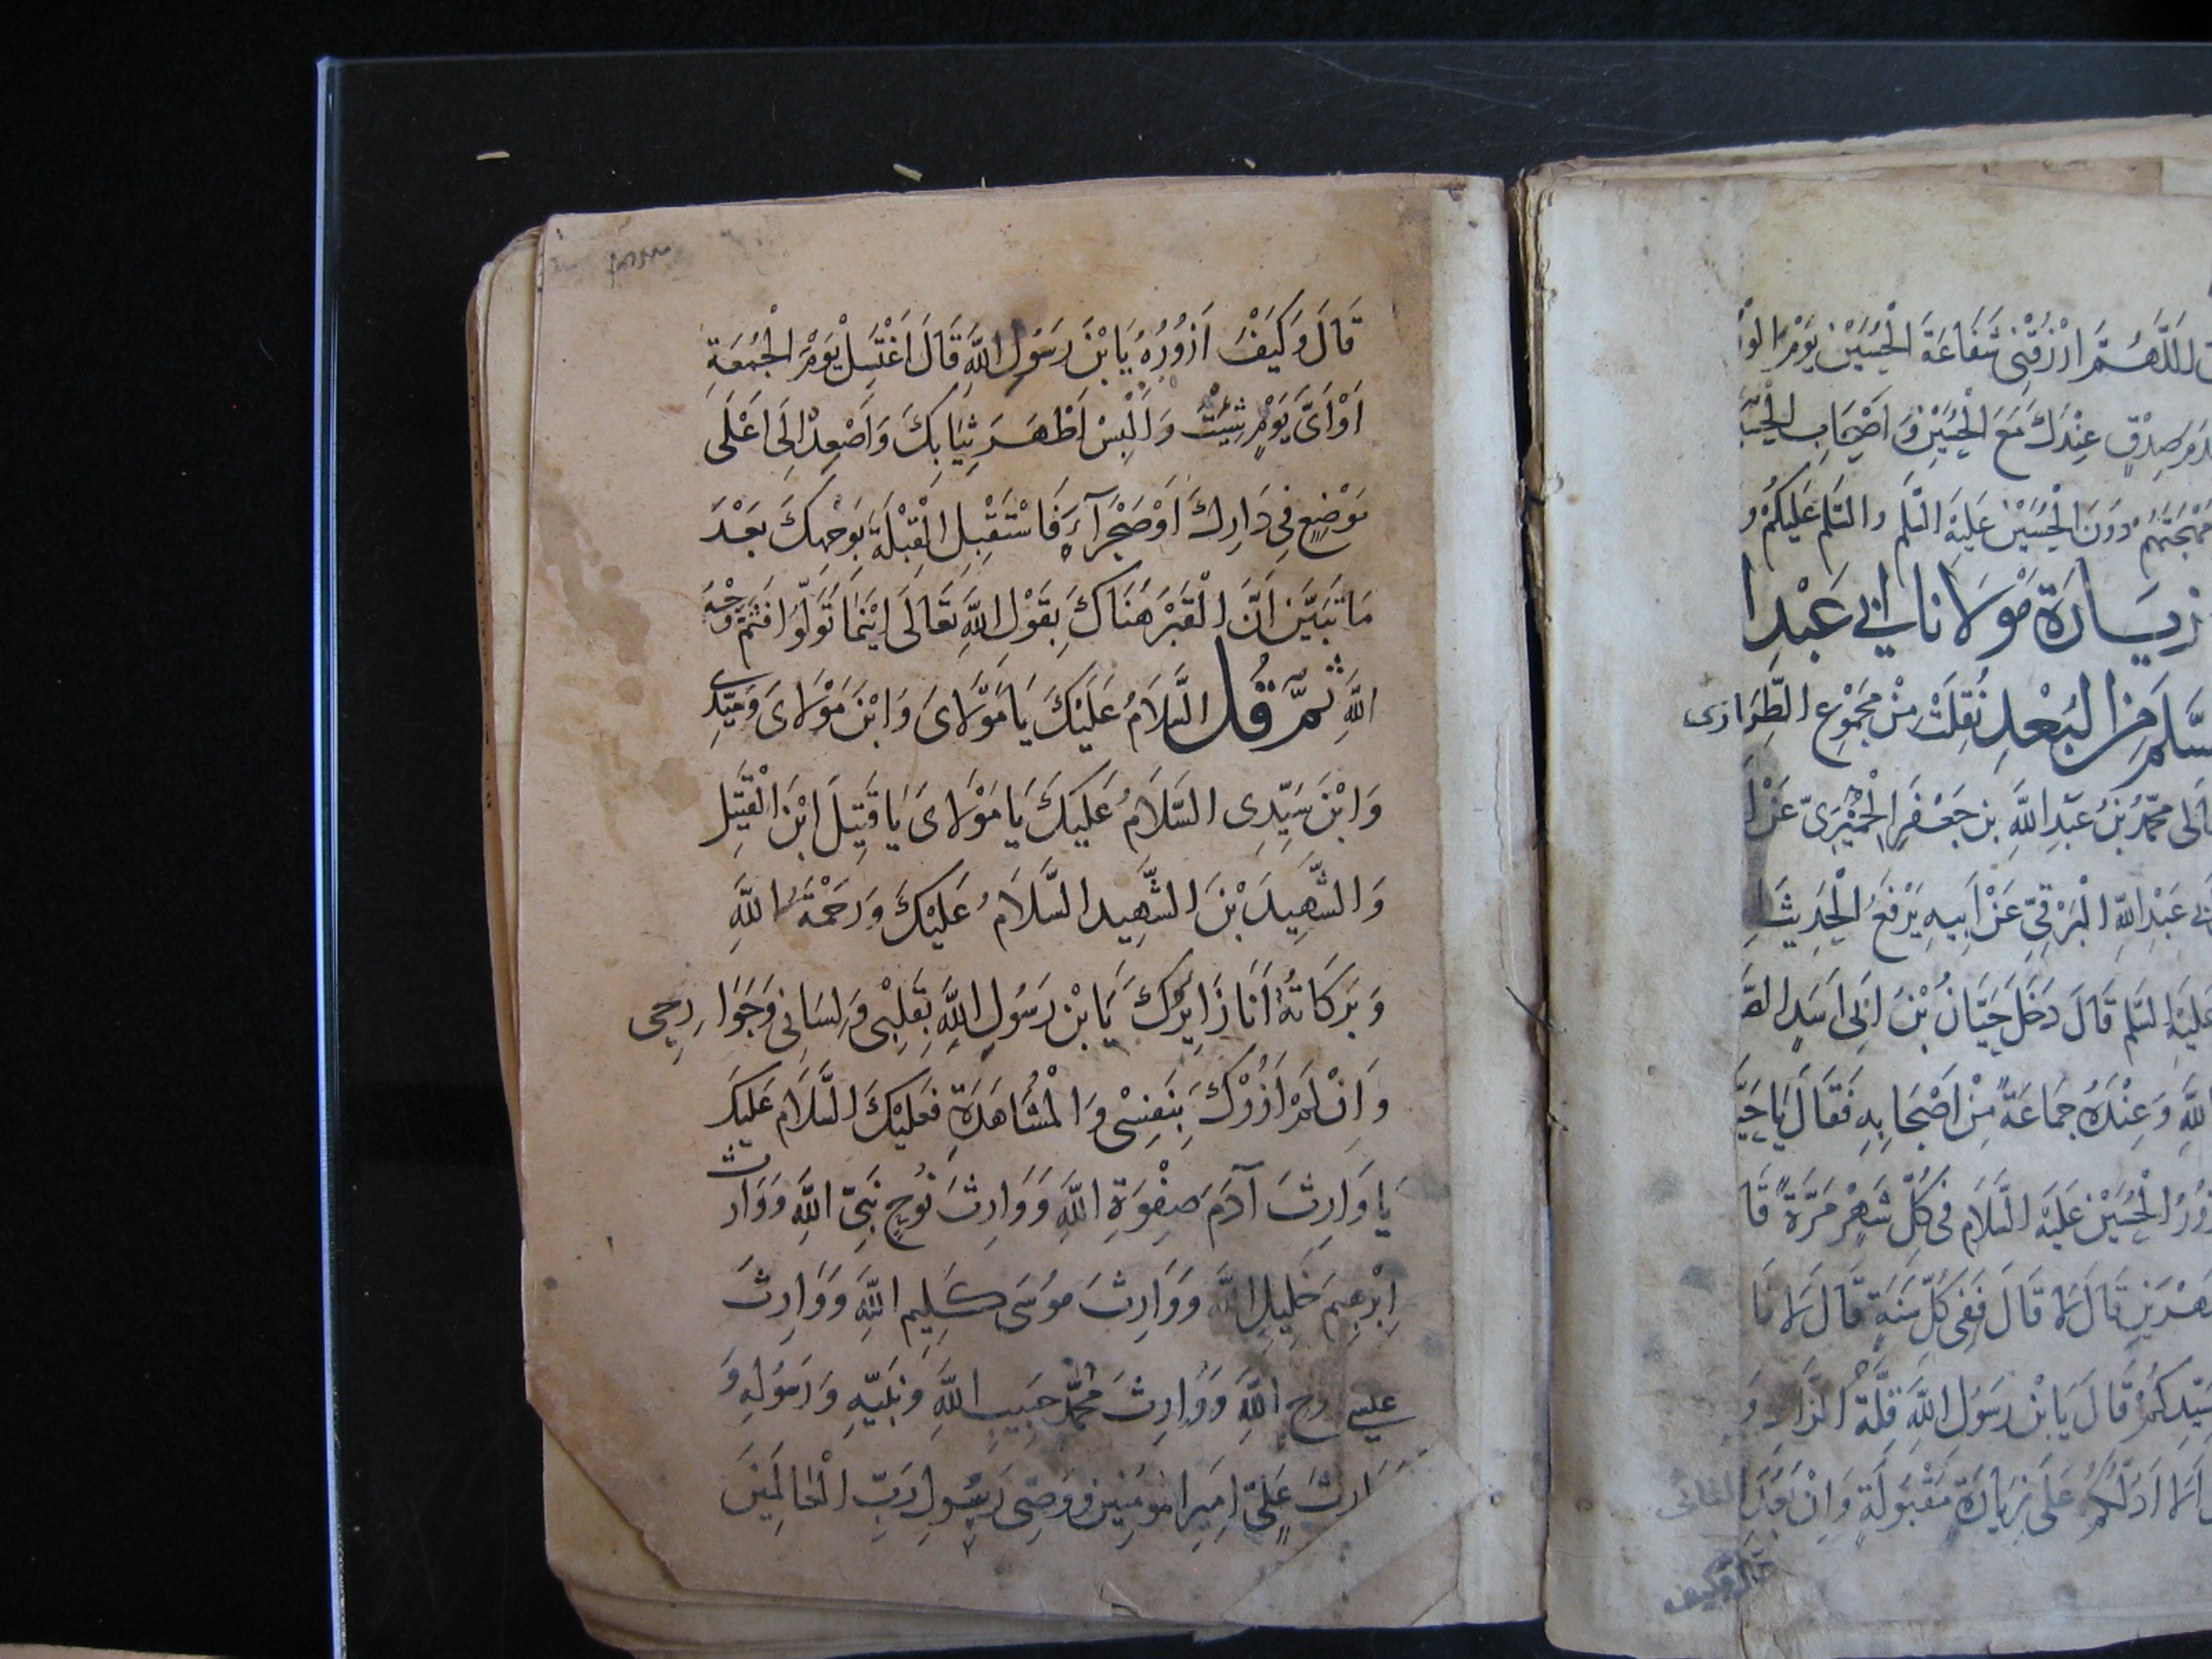 اللَّهُمَّ ارْزُقْنِي شَفَاعَةَ الْحُسَيْنِ يَوْمَ الْوُ
صِدْقٍ عِنْدَكَ مَعَ الْحُسَيْنِ وَاَصْحَابِ الْحُسَيْـ
مُهْجَتَهُمْ دُونَ الْحُسَيْنِ عَلَيْهِ السَّلم والسَّلم عَلَيْكُمْ و
زِيَارَة مَوْلَانا ابي عَبْدِا
مِنَ الْبُعْدِ نُقِلَتْ مِنْ مَجْمُوعِ الطِّرَازى
مُحَمَّدُ بْنُ عَبْدِ اللَّهِ بن جَعْفَرِ الْحِمْيَرِىّ عَنْ ا
عَبْدِ اللَّهِ الْبَرْقِيِّ عَنْ اَبِيهِ يَرْفَعُ الْحَدِيثَ اِ
عَلَيْهِ السَّلم قَالَ دَخَلَ حَيَّانُ بْنَ ابى اَسَدٍ الصَّ
اللَّهِ وَعِنْدَهُ جَمَاعَةٌ مِنْ اَصْحَابِهِ فَقَالَ يَا حَيَّـ
الْحُسَيْنَ عَلَيْهِ السَّلَام فى كُلِّ شَهْرٍ مَرَّةً قَا
قَالَ لَا قَالَ فَفِى كُلِّ سَنَةٍ قَالَ لَا فَا
بِسَيِّدِكُمْ قَالَ يَا بْنَ رَسُولِ اللَّهِ قِلَّةُ الزَّاد وَ
اَلَا اَدُلُّكُمْ عَلَى زِيَارَةٍ مَقْبُولَةٍ وَاِنْ
قال وكيف
قَالَ وَكَيْفَ اَزُورُهُ يَا بْنَ رَسُولِ اللَّهِ قَالَ اغْتَسِلْ يَوْمَ الْجُمُعَةِ
اَوْ اَىَّ يَوْمٍ شِئْتَ وَالْبِسْ اَطْهَرَ ثِيَابِكَ وَاصْعِدْ اِلَى اَعْلَى
مَوْضِعٍ فِى دَارِكَ اَوْ صَحْرَآءَ فَاسْتَقْبِلِ الْقِبْلَةَ بِوَجْهِكَ بَعْدَ
مَا تَبَيَّنَ اَنَّ الْقَبْرَ هُنَاكَ بِقَوْلِ اللَّهِ تَعَالَى اَيْنَمَا تُوَلُّوا فَثَمَّ وَجْهُ
اللَّهِ ثُمَّ قُل السَّلَامُ عَلَيْكَ يَا مَوْلَاىَ وَابْنَ مَوْلَاىَ وَسَيِّدِى
وَابْنَ سَيِّدِى السَّلَامُ عَلَيْكَ يَا مَوْلَاىَ يَا قَتِيلَ ابْنَ الْقَتِيلِ
وَالشَّهِيدَ بْنَ الشَّهِيدِ السَّلَامُ عَلَيْكَ وَرَحْمَةُ اللَّهِ
وَبَرَكَاتُهُ اَنَا زَايِرُكَ يَا بْنَ رَسُولِ اللَّهِ بِقَلْبِى وَلِسَانِى وَجَوَارِحِى
وَاِنْ لَمْ اَزُرْكَ بِنَفْسِى وَالْمُشَاهَدَةِ فَعَلَيْكَ السَّلَام عَلَيْكَ
يَا وَارِثَ آدَمَ صِفْوَةِ اللَّهِ وَوَارِثَ نُوحٍ نَبِىِّ اللَّهِ وَوَارث
اِبْرهِيمَ خَلِيلِ اللَّهِ وَوَارِثَ مُوسَى كَلِيمِ اللَّهِ وَوَارِثَ
عيسى روح اللَّهِ وَوَارِثَ مُحَمَّدٍ حَبِيبِ اللَّهِ وَنَبِيِّهِ وَرَسُولِهِ وَ
ارثَ عَلِىٍّ اَمِيرِ المومِنِين وَوَصِىِّ رَسُولِ رَبِّ الْعَالَمِينَ